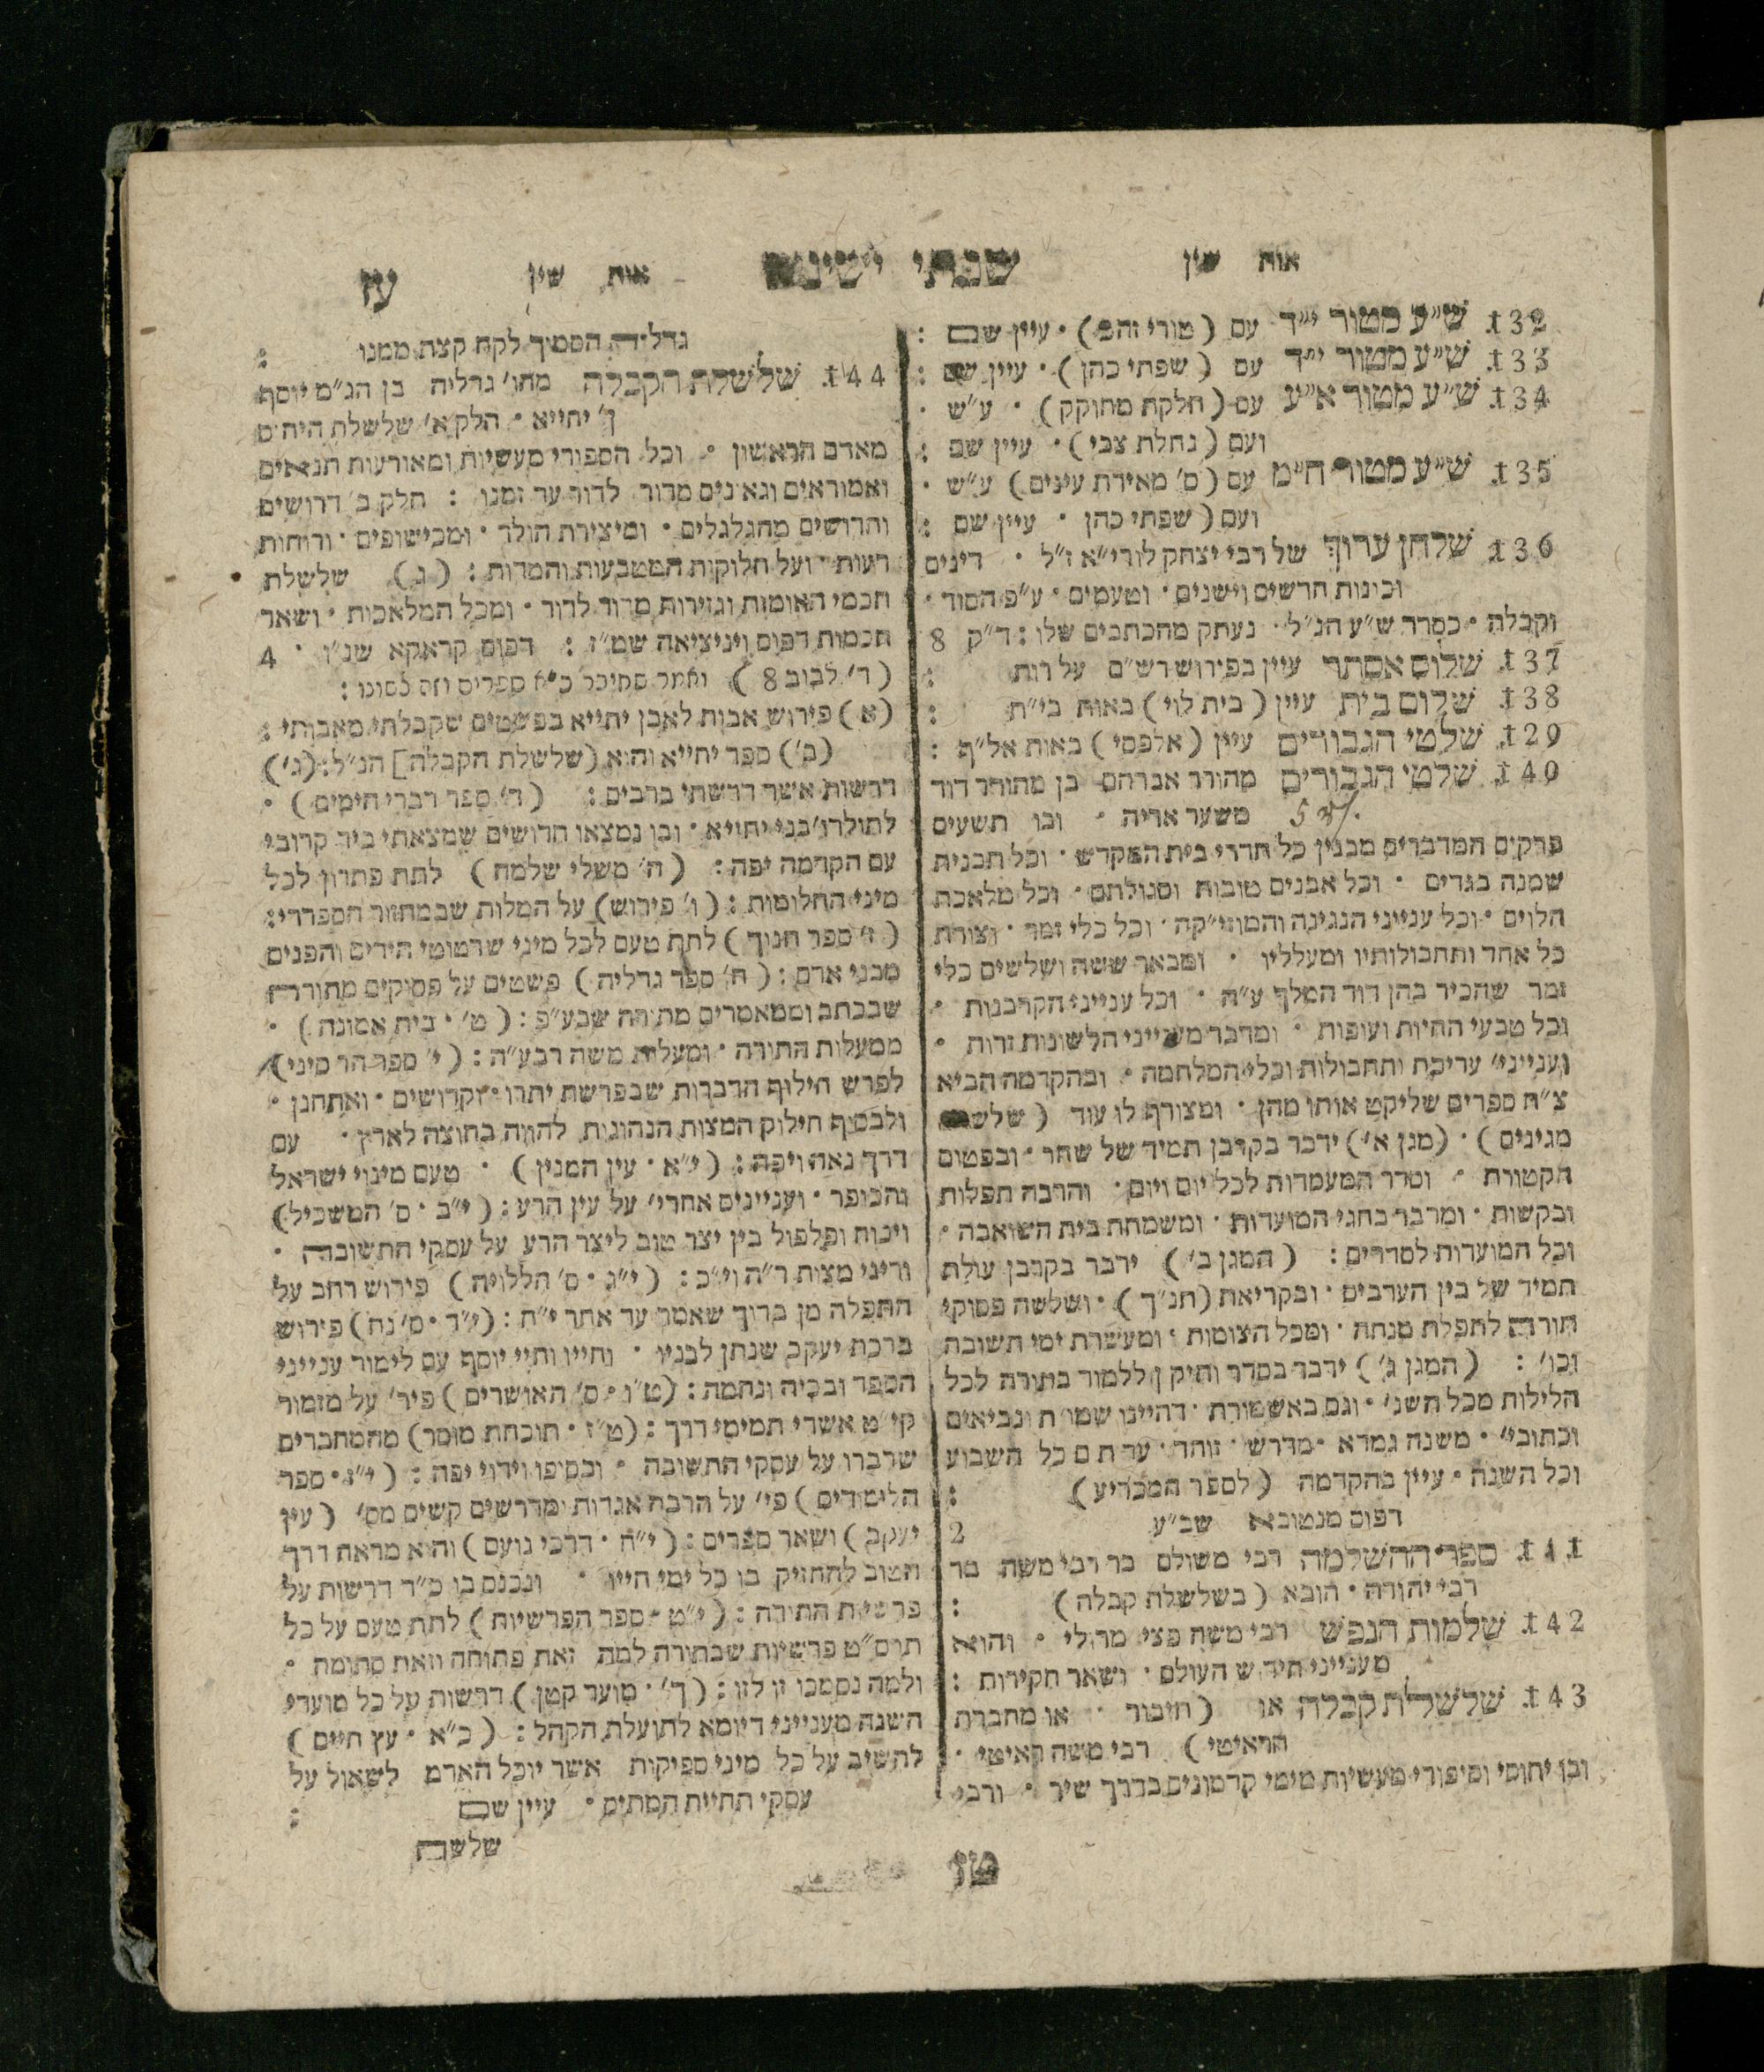 אות שין שפתי ישינים אות שין עז
132 ש״ע מטור י״ד עם (טורי זהב) · עיין שם :
133 ש״ע מטור י״ד עם (שפתי כהן) · עיין שם :
134 ש״ע מטור א״ע עם (חלקת מחוקק) · ע״ש ·
ועם (נחלת צבי) · עיין שם :
135 ש״ע מטור ח״מ עם (ס׳ מאירת עינים) ע״ש ·
ועם (שפתי כהן · עיין שם :
136 שלחן ערוך של רבי יצחק לוריי״א ז״ל · דינים
וכונות חדשים וישנים · וטעמים · ע״פ הסוד ·
וקבלה · כסדר ש״ע הנ״ל · נעתק מהכתבים שלו : ד״ק 8
137 שלום אסתר עיין בפירוש רש״ם על רות :
138 שלום בית עיין (בית לוי) באות בי״ת :
129 שלטי הגבורים עיין (אלפסי) באות אל״ף :
140 שלטי הגבורים מהורר אברהם בן מהורר דוד
משער אריה · ובו תשעים
פרקים המדברים מבנין כל חדרי בית המקדש · וכל תבנית
שמנה בגדים · וכל אבנים טובות וסגולתם · וכל מלאכת
הלוים · וכל ענייני הנגינה והמוזי״קה · וכל כלי זמר · וצורת
כל אחד ותחבולותיו ומעלליו · ומבאר ששה ושלשים כלי
זמר שהכיר בהן דוד המלך ע״ה · וכל ענייני הקרבנות ·
וכל טבעי החיות ועופות · ומדבר מענייני הלשונות זרות ·
וענייני׳ עריכת ותחבולות וכלי המלחמה · ובהקדמה הביא
צ״ח ספרים שליקט אותו מהן · ומצורף לו עוד (שלשה
מגינים) · (מגן א׳) ידבר בקרבן תמיד של שחר · ובפטום
הקטורת · וסדר המעמדות לכל יום ויום · והרבה תפלות
ובקשות · ומדבר בחגי המועדות · ומשמחת בית השואבה ·
וכל המועדות לסדרים : (המגן ב׳) ידבר בקרבן עולת
תמיד של בין הערבים · ובקריאת (תנ״ך) · ושלשה פסוקי
תורה לתפלת מנחה · ומכל הצומות · ומעשרת ימי תשובה
וכו׳ : (המגן ג׳) ידבר בסדר ותיקון ללמוד בתורה לכל
הלילות מכל השנ׳ · וגם באשמורת · דהיינו שמות ונביאים
וכתובי׳ · משנה גמרא · מדרש · זוהר · עד תם כל השבוע
וכל השנה · עיין בהקדמה (לספר המכריע) :
דפוס מנטובא שב״ע 2
141 ספר ההשלמה רבי משולם בר רבי משה בר
רבי יהודה · הובא (בשלשלת קבלה) :
142 שלמות הנפש רבי משה פצי מרולי · והוא
מענייני חידוש העולם · ושאר חקירות :
143 שלשלת קבלה או (חיבור · או מחברת
הראיטי) רבי משה ראיטי ·
ובן יחוסי וסיפורי מעשיות מימי קדמונים בדרך שיר · ורבי
גדליה הסמיך לקח קצת ממנו :
144 שלשלת הקבלה מהו׳ גדליה בן הג״מ יוסף
ן׳ יחייא · חלק א׳ שלשלת היחס
מאדם הראשון · וכל הספורי מעשיות ומאורעות תנאים
ואמוראים וגאונים מדור לדור עד זמנו : חלק ב׳ דרושים
והדרושים מהגלגלים · ומיצירת הולד · ומכישופים · ורוחות
רעות · ועל חלוקות המטבעות והמדות : (ג) שלשלת
חכמי האומות וגזירות מדור לדור · ומכל המלאכות · ושאר
חכמות דפוס ויניציאה שמ״ז : דפוס קראקא שנ״ו · 4
(ד׳ לבוב 8) ואמר שחיבר כ״א ספרים וזה לשונו :
(א) פירוש אבות לאבן יחייא בפשטים שקבלתי מאבותי :
(ב׳) ספר יחייא והוא (שלשלת הקבלה] הנ״ל : (ג׳)
דרשות אשר דרשתי ברבים : (ד׳ ספר דברי הימים) ·
לתולדו׳ בני יחייא · ובו נמצאו חדושים שמצאתי ביד קרובי
עם הקדמה יפה : (ה׳ משלי שלמה) לתת פתרון לכל
מיני החלומות : (ו׳ פירוש) על המלות שבמחזור הספרדי :
(ז׳ ספר חנוך) לתת טעם לכל מיני שרטוטי הידים והפנים
מבני אדם : (ח׳ ספר גדליה) פשטים על פסוקים מתורה
שבכתב וממאמרים מתורה שבע״פ : (ט׳ · בית אמונה) ·
ממעלות התורה · ומעלות משה רבע״ה : (י׳ ספר הר סיני)
לפרש חילוף הדברות שבפרשת יתרו · וקדושים · ואתחנן ·
ולבסוף חילוק המצות הנהוגות להווה בחוצה לארץ · עם
דרך נאה ויפה : (י״א · עין המנין) · טעם מינוי ישראל
והכופר · ועניינים אחרי׳ על עין הרע : (י״ב · ס׳ המשכיל)
ויכוח ופלפול בין יצר טוב ליצר הרע על עסקי התשובה ·
ודיני מצות ר״ה וי״כ : (י״ג · ס׳ הללויה) פירוש רחב על
התפלה מן ברוך שאמר עד אחר י״ח : (י״ד · ס׳ נח) פירוש
ברכת יעקב שנתן לבניו · וחייו וחיי יוסף עם לימוד ענייני
הספד ובכיה ונחמה : (ט״ו · ס׳ האושרים) פיר׳ על מזמור
קי״ט אשרי תמימי דרך : (ט״ז · תוכחת מוסר) מהמחברים
שדברו על עסקי התשובה · ובסיפו וידוי יפה : (י״ז · ספר
הלימודים) פי׳ על הרבה אגדות ומדרשים קשים מס׳ (עין
יעקב) ושאר ספרים : (י״ח · דרכי נועם) והוא מראה דרך
הטוב להחזיק בו כל ימי חייו · ונכנס בו כ״ד דרשות על
פרשיות התורה : (י״ט · ספר הפרשיות) לתת טעם על כל
תרס״ט פרשיות שבתורה למה זאת פתוחה וזאת סתומה ·
ולמה נסמכו זו לזו : (ך׳ · מועד קטן) דרשות על כל מועדי
השנה מענייני דיומא לתועלת הקהל : (כ״א · עץ חיים)
להשיב על כל מיני ספיקות אשר יוכל האדם לשאול על
עסקי תחיית המתים · עיין שם :
שלשה
טז